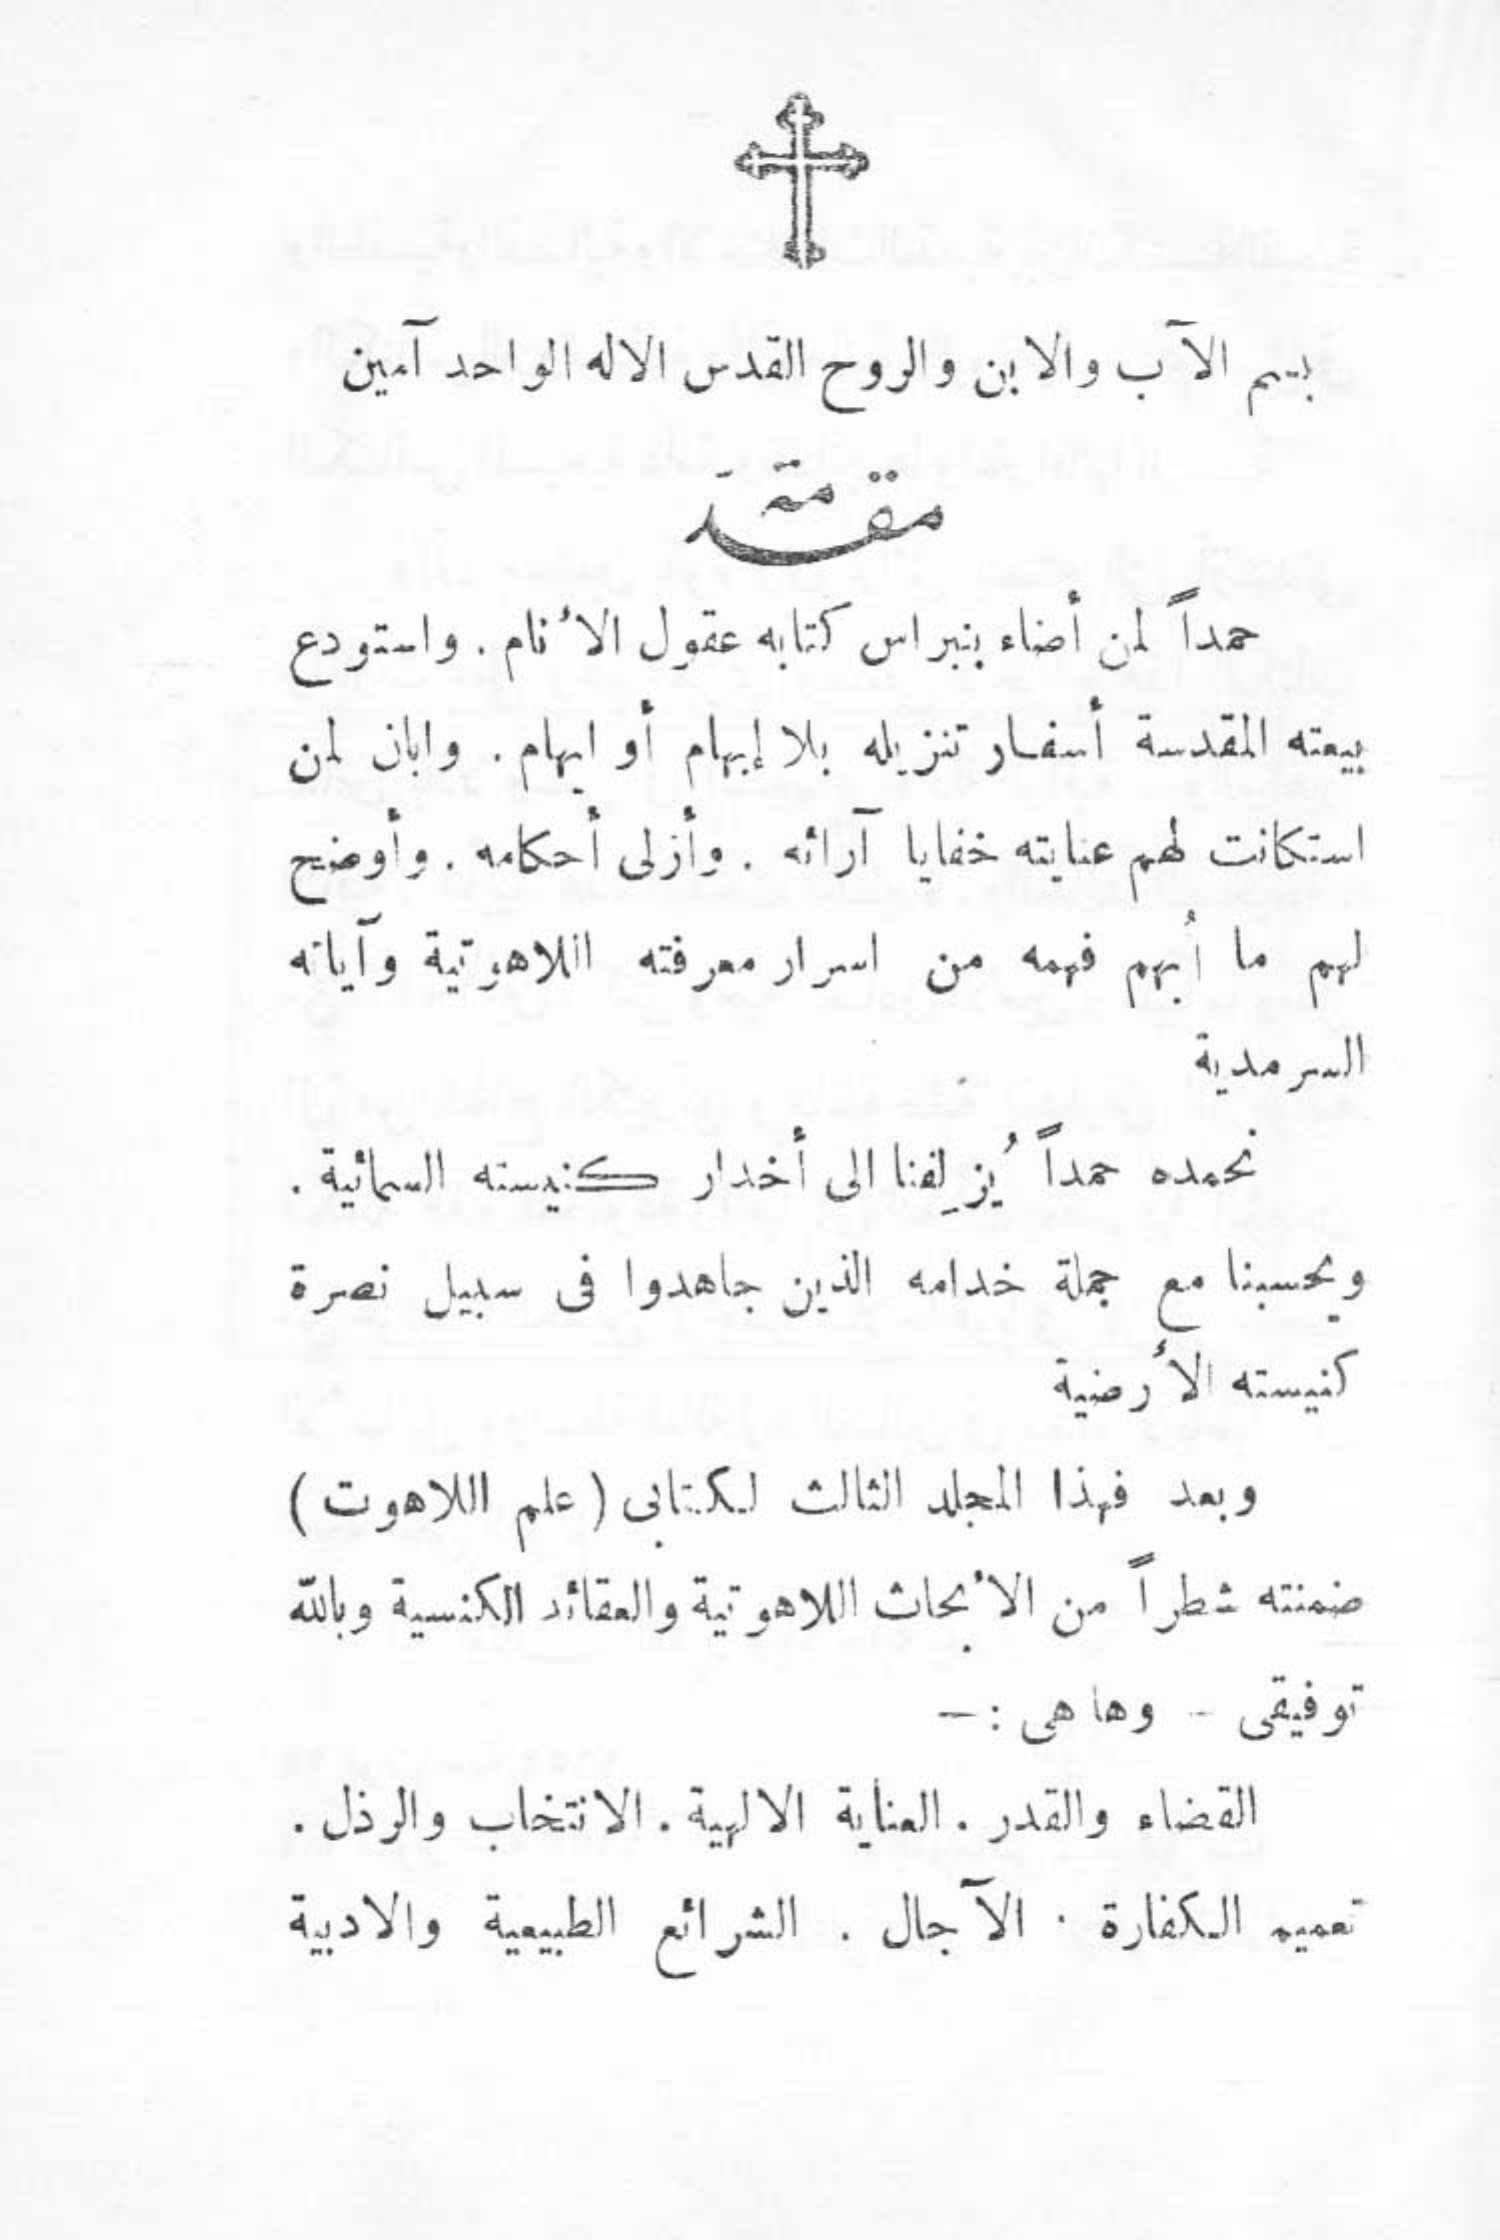 بسم الآب والابن والروح القدس الاله الواحد آمين
مقدمة
حمداً لمن أضاء بنبراس كتابه عقول الأنام . واستودع
بيعته المقدسة أسفار تنزيله بلا إبهام أو ايهام . وابان لمن
استكانت لهم عنايته خفايا آرائه . وأزلى أحكامه . وأوضح
لهم ما أُبهم فهمه من اسرار معرفته اللاهوتية وآياته
السرمدية
نحمده حمداً يُزلِفنا الى أخدار كنيسته السمائية .
ويحسبنا مع جملة خدامه الذين جاهدوا فى سبيل نصرة
كنيسته الأرضية
وبعد فهذا المجلد الثالث لكتابى ( علم اللاهوت )
ضمنته شطراً من الأبحاث اللاهوتية والعقائد الكنسية وبالله
توفيقى - وها هى : —
القضاء والقدر . العناية الالهية . الانتخاب والرذل .
تعميم الكفارة . الآجال . الشرائع الطبيعية والادبية